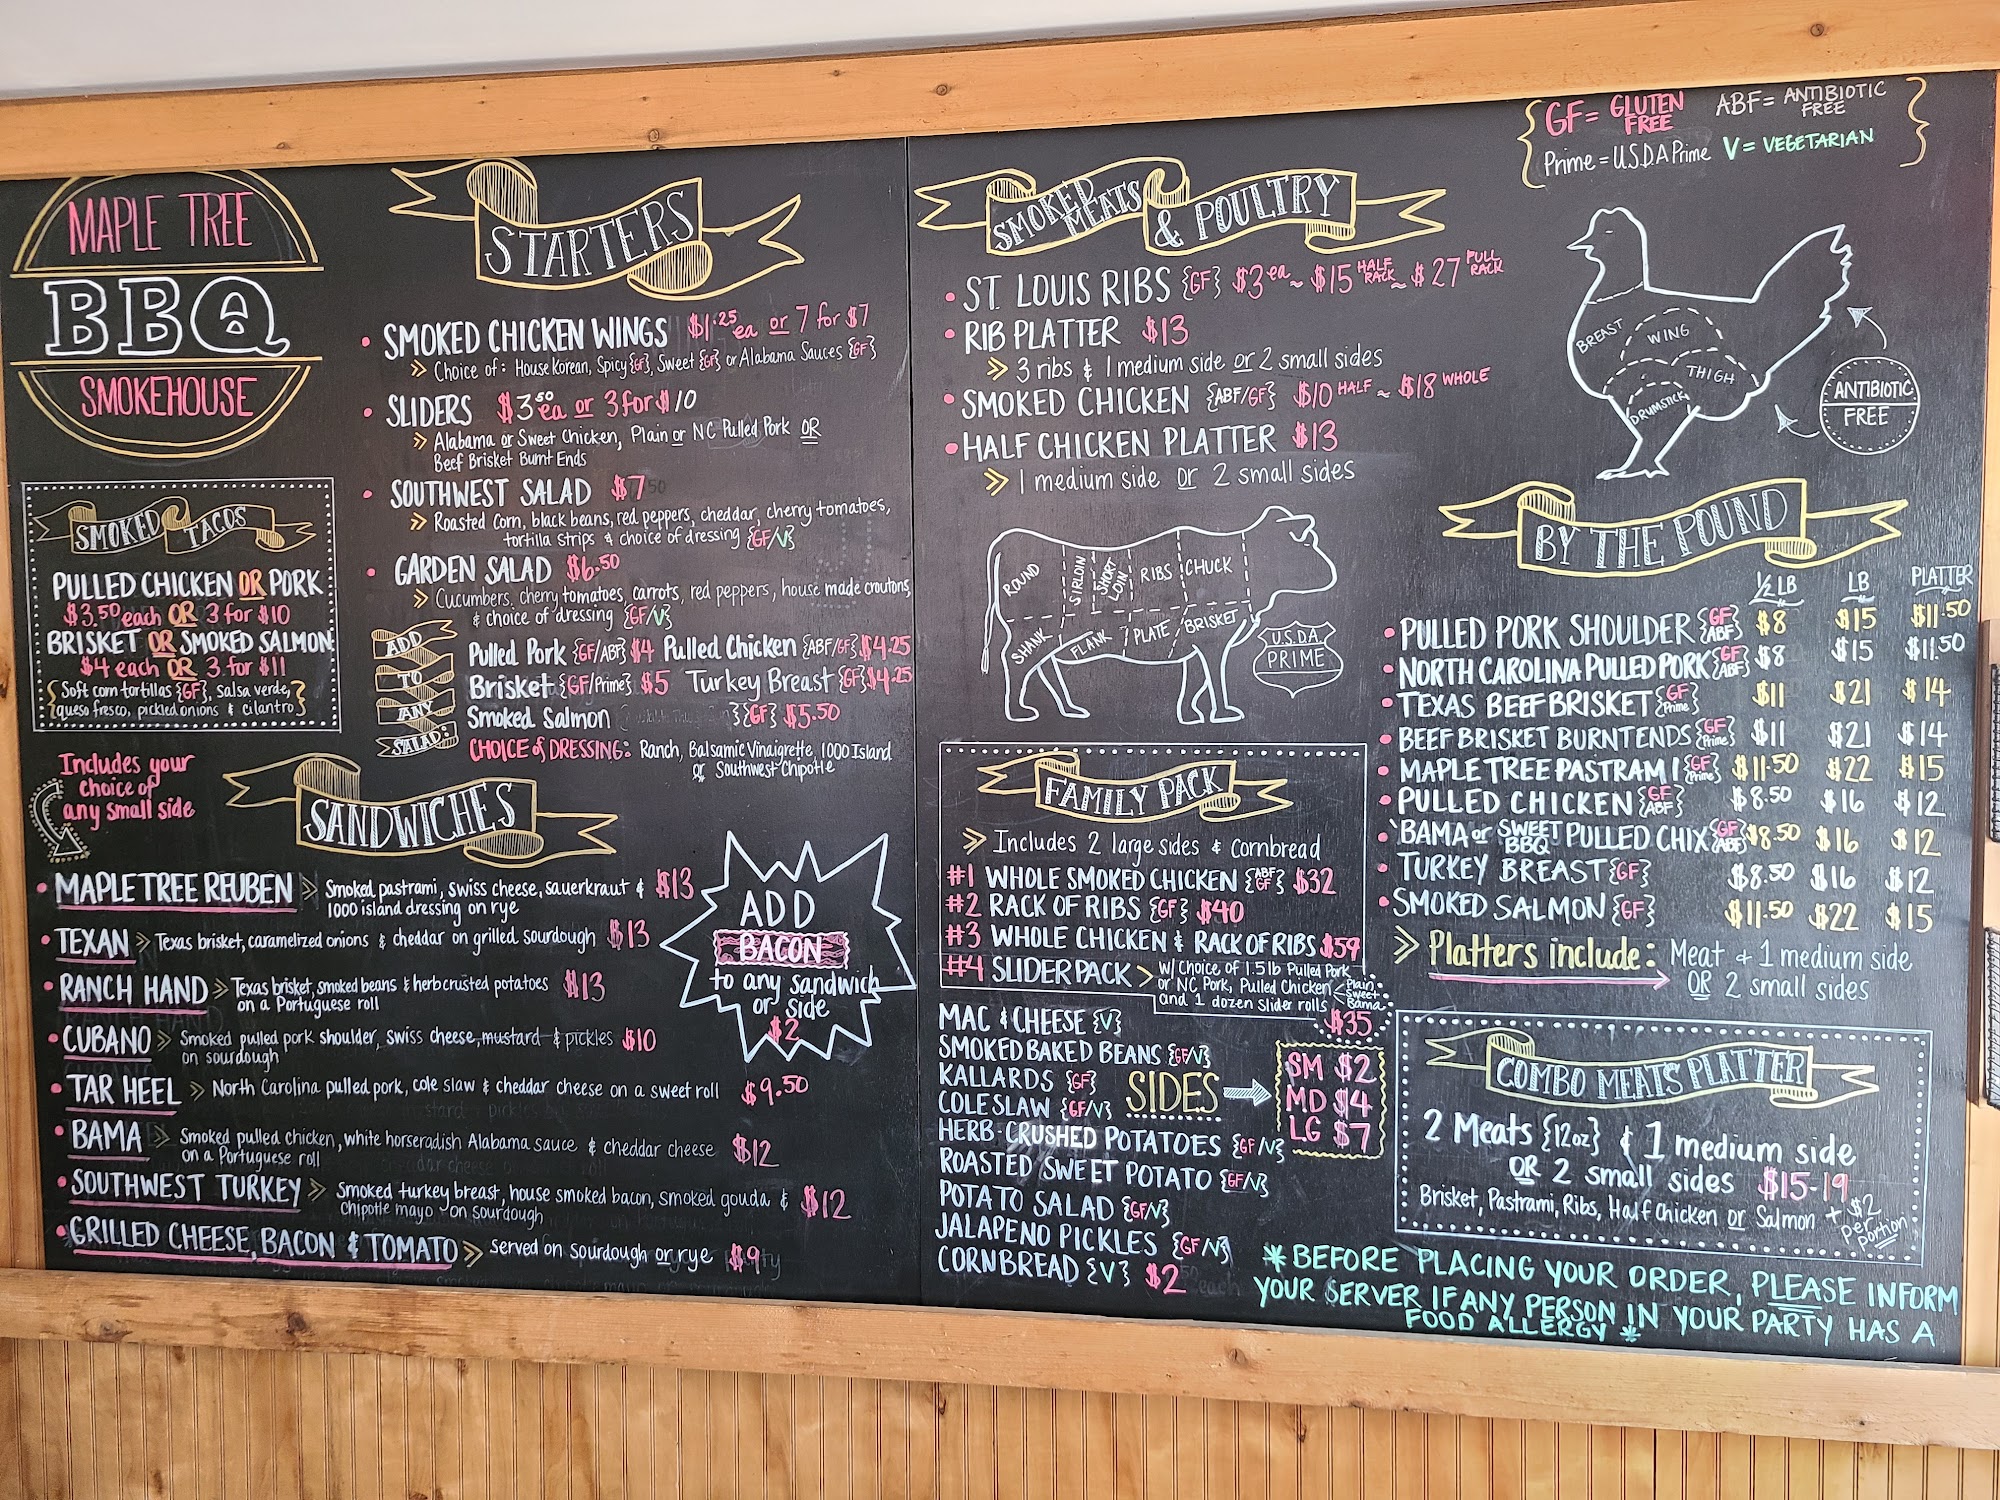 MAPLE TREE
BBQ
SMOKEHOUSE
SMOKED TACOS
PULLED CHICKEN OR PORK
$3.50 each OR 3 for $10
BRISKET OR SMOKED SALMON
$4 each OR 3 for $11
{Soft corn tortillas {GF}, salsa verde,
queso fresco, pickled onions & cilantro}
STARTERS
• SMOKED CHICKEN WINGS $1.25 ea or 7 for $7
» Choice of: House Korean, Spicy {GF}, Sweet {GF} or Alabama Sauces {GF}
• SLIDERS $3.50 ea or 3 for $10
» Alabama or Sweet Chicken, Plain or NC Pulled Pork OR
Beef Brisket Burnt Ends
• SOUTHWEST SALAD $7
» Roasted Corn, black beans, red peppers, cheddar, cherry tomatoes,
tortilla strips & choice of dressing {GF/V}
• GARDEN SALAD $6.50
» Cucumbers, cherry tomatoes, carrots, red peppers, house made croutons,
& choice of dressing {GF/V}
ADD
TO
ANY
SALAD:
Pulled Pork {GF/ABF} $4 Pulled Chicken {ABF/GF} $4.25
Brisket {GF/Prime} $5 Turkey Breast {GF} $4.25
Smoked Salmon {GF} $5.50
CHOICE of DRESSING: Ranch, Balsamic Vinaigrette, 1000 Island
or Southwest Chipotle
Includes your
choice of
any small side
SANDWICHES
• MAPLE TREE REUBEN » Smoked pastrami, swiss cheese, sauerkraut & $13
1000 island dressing on rye
• TEXAN » Texas brisket, caramelized onions & cheddar on grilled sourdough $13
• RANCH HAND » Texas brisket, smoked beans & herb crusted potatoes $13
on a Portuguese roll
• CUBANO » Smoked pulled pork shoulder, swiss cheese, mustard & pickles $10
on sourdough
• TAR HEEL » North Carolina pulled pork, cole slaw & cheddar cheese on a sweet roll $9.50
• BAMA » Smoked pulled chicken, white horseradish Alabama sauce & cheddar cheese $12
on a Portuguese roll
• SOUTHWEST TURKEY » Smoked turkey breast, house smoked bacon, smoked gouda & $12
Chipotle mayo on sourdough
• GRILLED CHEESE, BACON & TOMATO » served on sourdough or rye $9
ADD
BACON
to any sandwich
or side
$2
SMOKED MEATS & POULTRY
• ST. LOUIS RIBS {GF} $3 ea ~ $15 HALF RACK ~ $27 FULL RACK
• RIB PLATTER $13
» 3 ribs & 1 medium side or 2 small sides
• SMOKED CHICKEN {ABF/GF} $10 HALF ~ $18 WHOLE
• HALF CHICKEN PLATTER $13
» 1 medium side or 2 small sides
ROUND
SIRLOIN
SHORT LOIN
RIBS
CHUCK
SHANK
FLANK
PLATE
BRISKET
U.S.D.A.
PRIME
FAMILY PACK
» Includes 2 large sides & Cornbread
#1 WHOLE SMOKED CHICKEN {ABF GF} $32
#2 RACK OF RIBS {GF} $40
#3 WHOLE CHICKEN & RACK OF RIBS $59
#4 SLIDER PACK > w/ Choice of 1.5 lb Pulled Pork
or NC Pork, Pulled Chicken < Plain Sweet Bama
and 1 dozen Slider rolls
$35
MAC & CHEESE {V}
SMOKED BAKED BEANS {GF/V}
KALLARDS {GF}
COLESLAW {GF/V}
HERB-CRUSHED POTATOES {GF/V}
ROASTED SWEET POTATO {GF/V}
POTATO SALAD {GF/V}
JALAPENO PICKLES {GF/V}
CORNBREAD {V} $2
SIDES
SM $2
MD $4
LG $7
{GF = GLUTEN FREE ABF = ANTIBIOTIC FREE
Prime = U.S.D.A Prime V = VEGETARIAN}
BREAST
WING
THIGH
DRUMSTICK
ANTIBIOTIC
FREE
BY THE POUND
½ LB LB PLATTER
• PULLED PORK SHOULDER {GF ABF} $8 $15 $11.50
• NORTH CAROLINA PULLED PORK {GF ABF} $8 $15 $11.50
• TEXAS BEEF BRISKET {GF Prime} $11 $21 $14
• BEEF BRISKET BURNT ENDS {GF Prime} $11 $21 $14
• MAPLE TREE PASTRAMI {GF Prime} $11.50 $22 $15
• PULLED CHICKEN {GF ABF} $8.50 $16 $12
• 'BAMA or SWEET BBQ PULLED CHIX {GF ABF} $8.50 $16 $12
• TURKEY BREAST {GF} $8.50 $16 $12
• SMOKED SALMON {GF} $11.50 $22 $15
» Platters include: Meat + 1 medium side
OR 2 small sides
COMBO MEATS PLATTER
2 Meats {12oz} & 1 medium side
OR 2 small sides $15-19
Brisket, Pastrami, Ribs, Half Chicken or Salmon + $2
per portion
* BEFORE PLACING YOUR ORDER, PLEASE INFORM
YOUR SERVER IF ANY PERSON IN YOUR PARTY HAS A
FOOD ALLERGY *